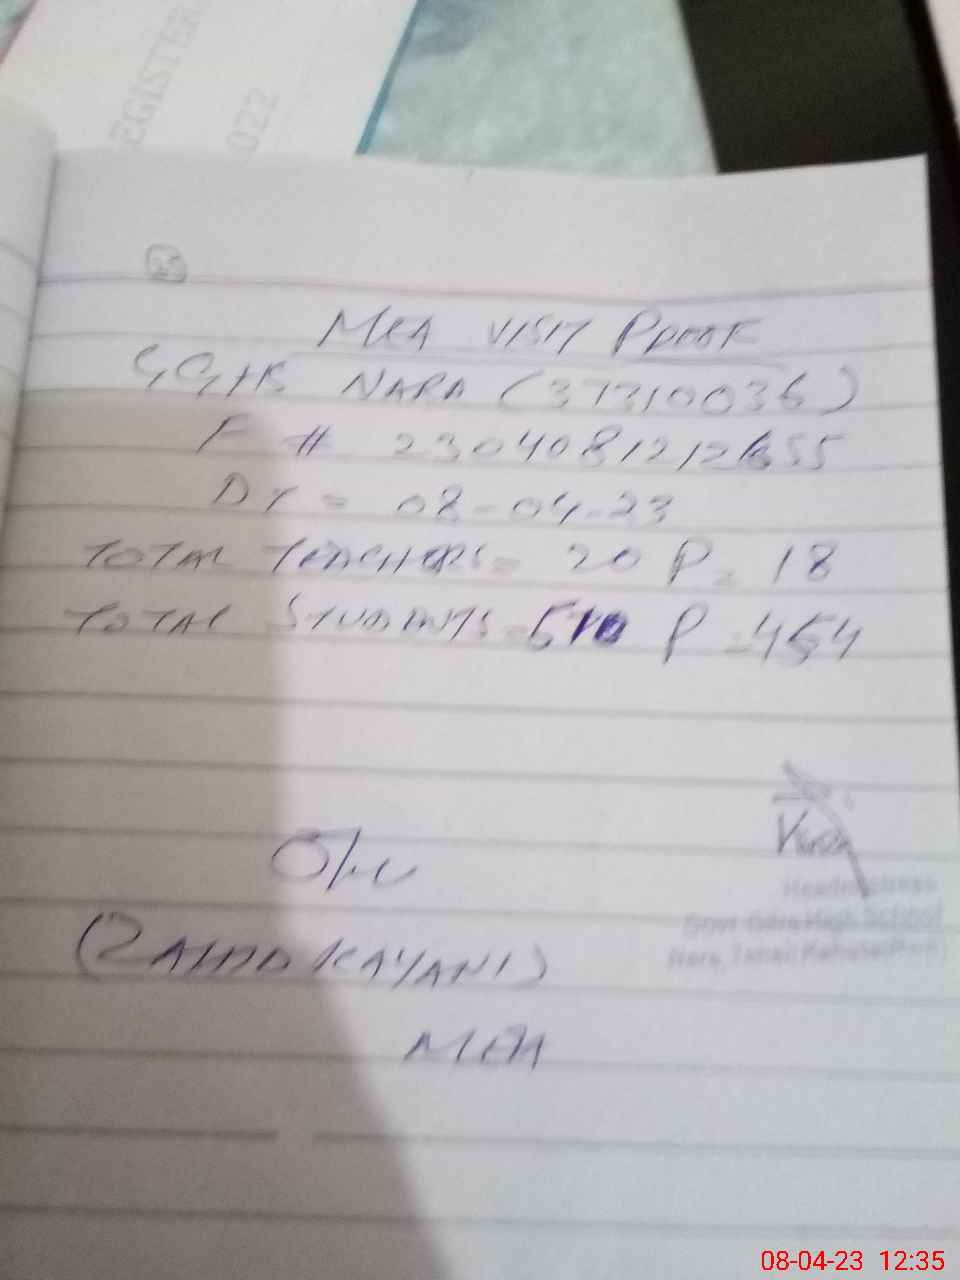 REGISTER
2022
25
MEA VISIT PROOF
GGHS NARA (37310036)
F # 2304081212655
DT = 08-04-23
TOTAL TEACHERS = 20 P = 18
TOTAL STUDENTS = 510 P = 454
Headmistress
Govt Girls High School
Nara, Tehsil Kahuta (Rwp)
(ZAHID KAYANI)
MEA
08-04-23 12:35